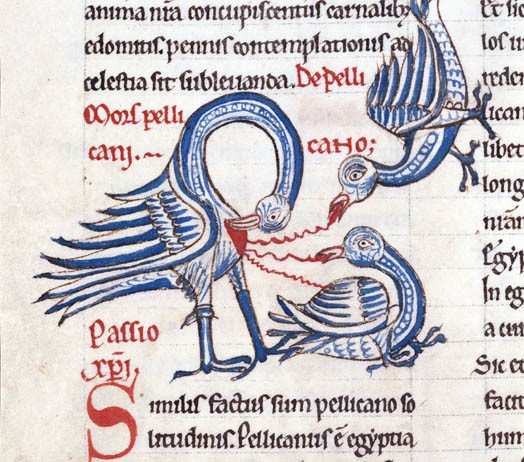 anima nr̄a concupiscentiis carnalib;
edomitis. pennis contemplationis ad
celestia sit subleuanda. De pelli
cano;
Mors pelli
cani.
Passio
xp̄i.
Similis factus sum pellicano so
litudinis. Pellicanus ē egyptia
los
lican
libet
long
niā
Egyp
In eg
Sic et
hum